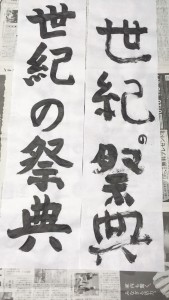 世紀の祭典
世紀の祭典